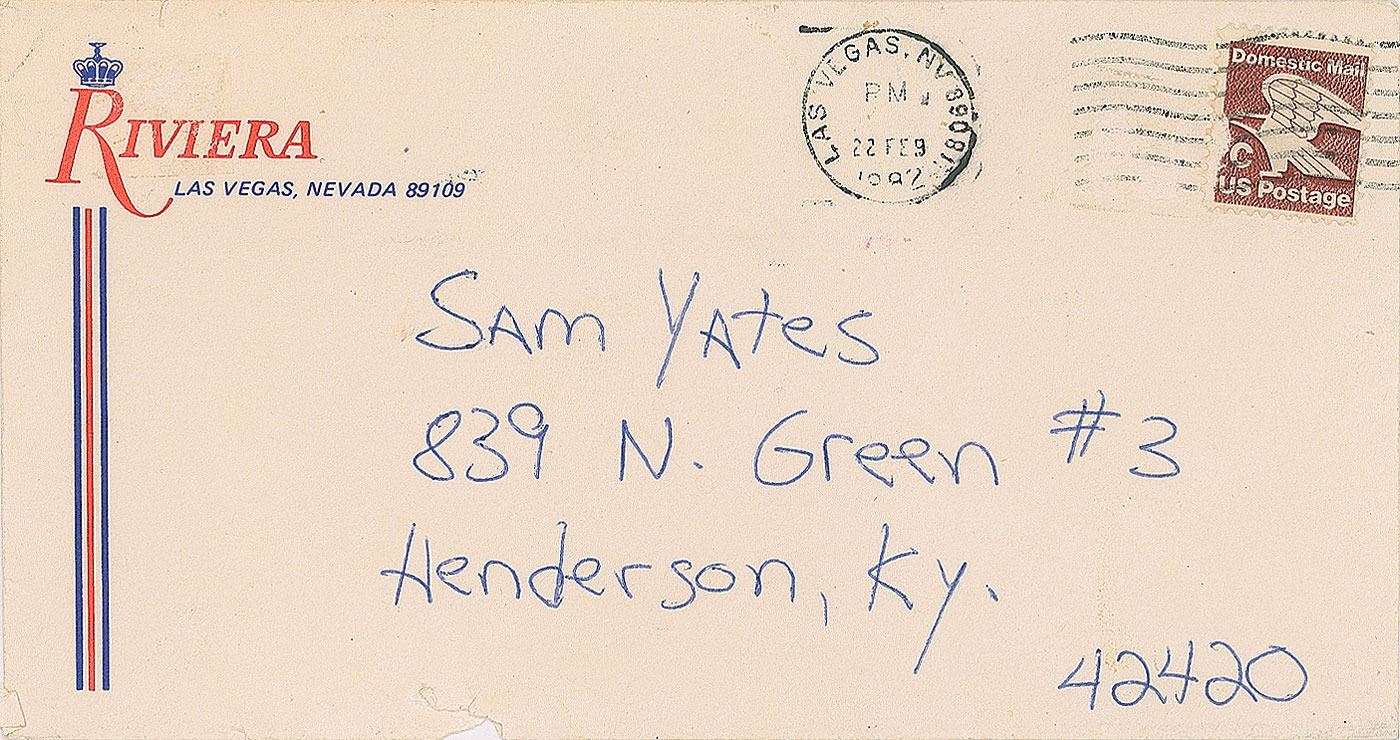 RIVIERA
LAS VEGAS, NEVADA 89109
LAS VEGAS, NV 890811
PM
22 FEB
1982
Domestic Mail
C
US Postage
SAm YAtes
839 N. Green #3
Henderson, Ky.
42420